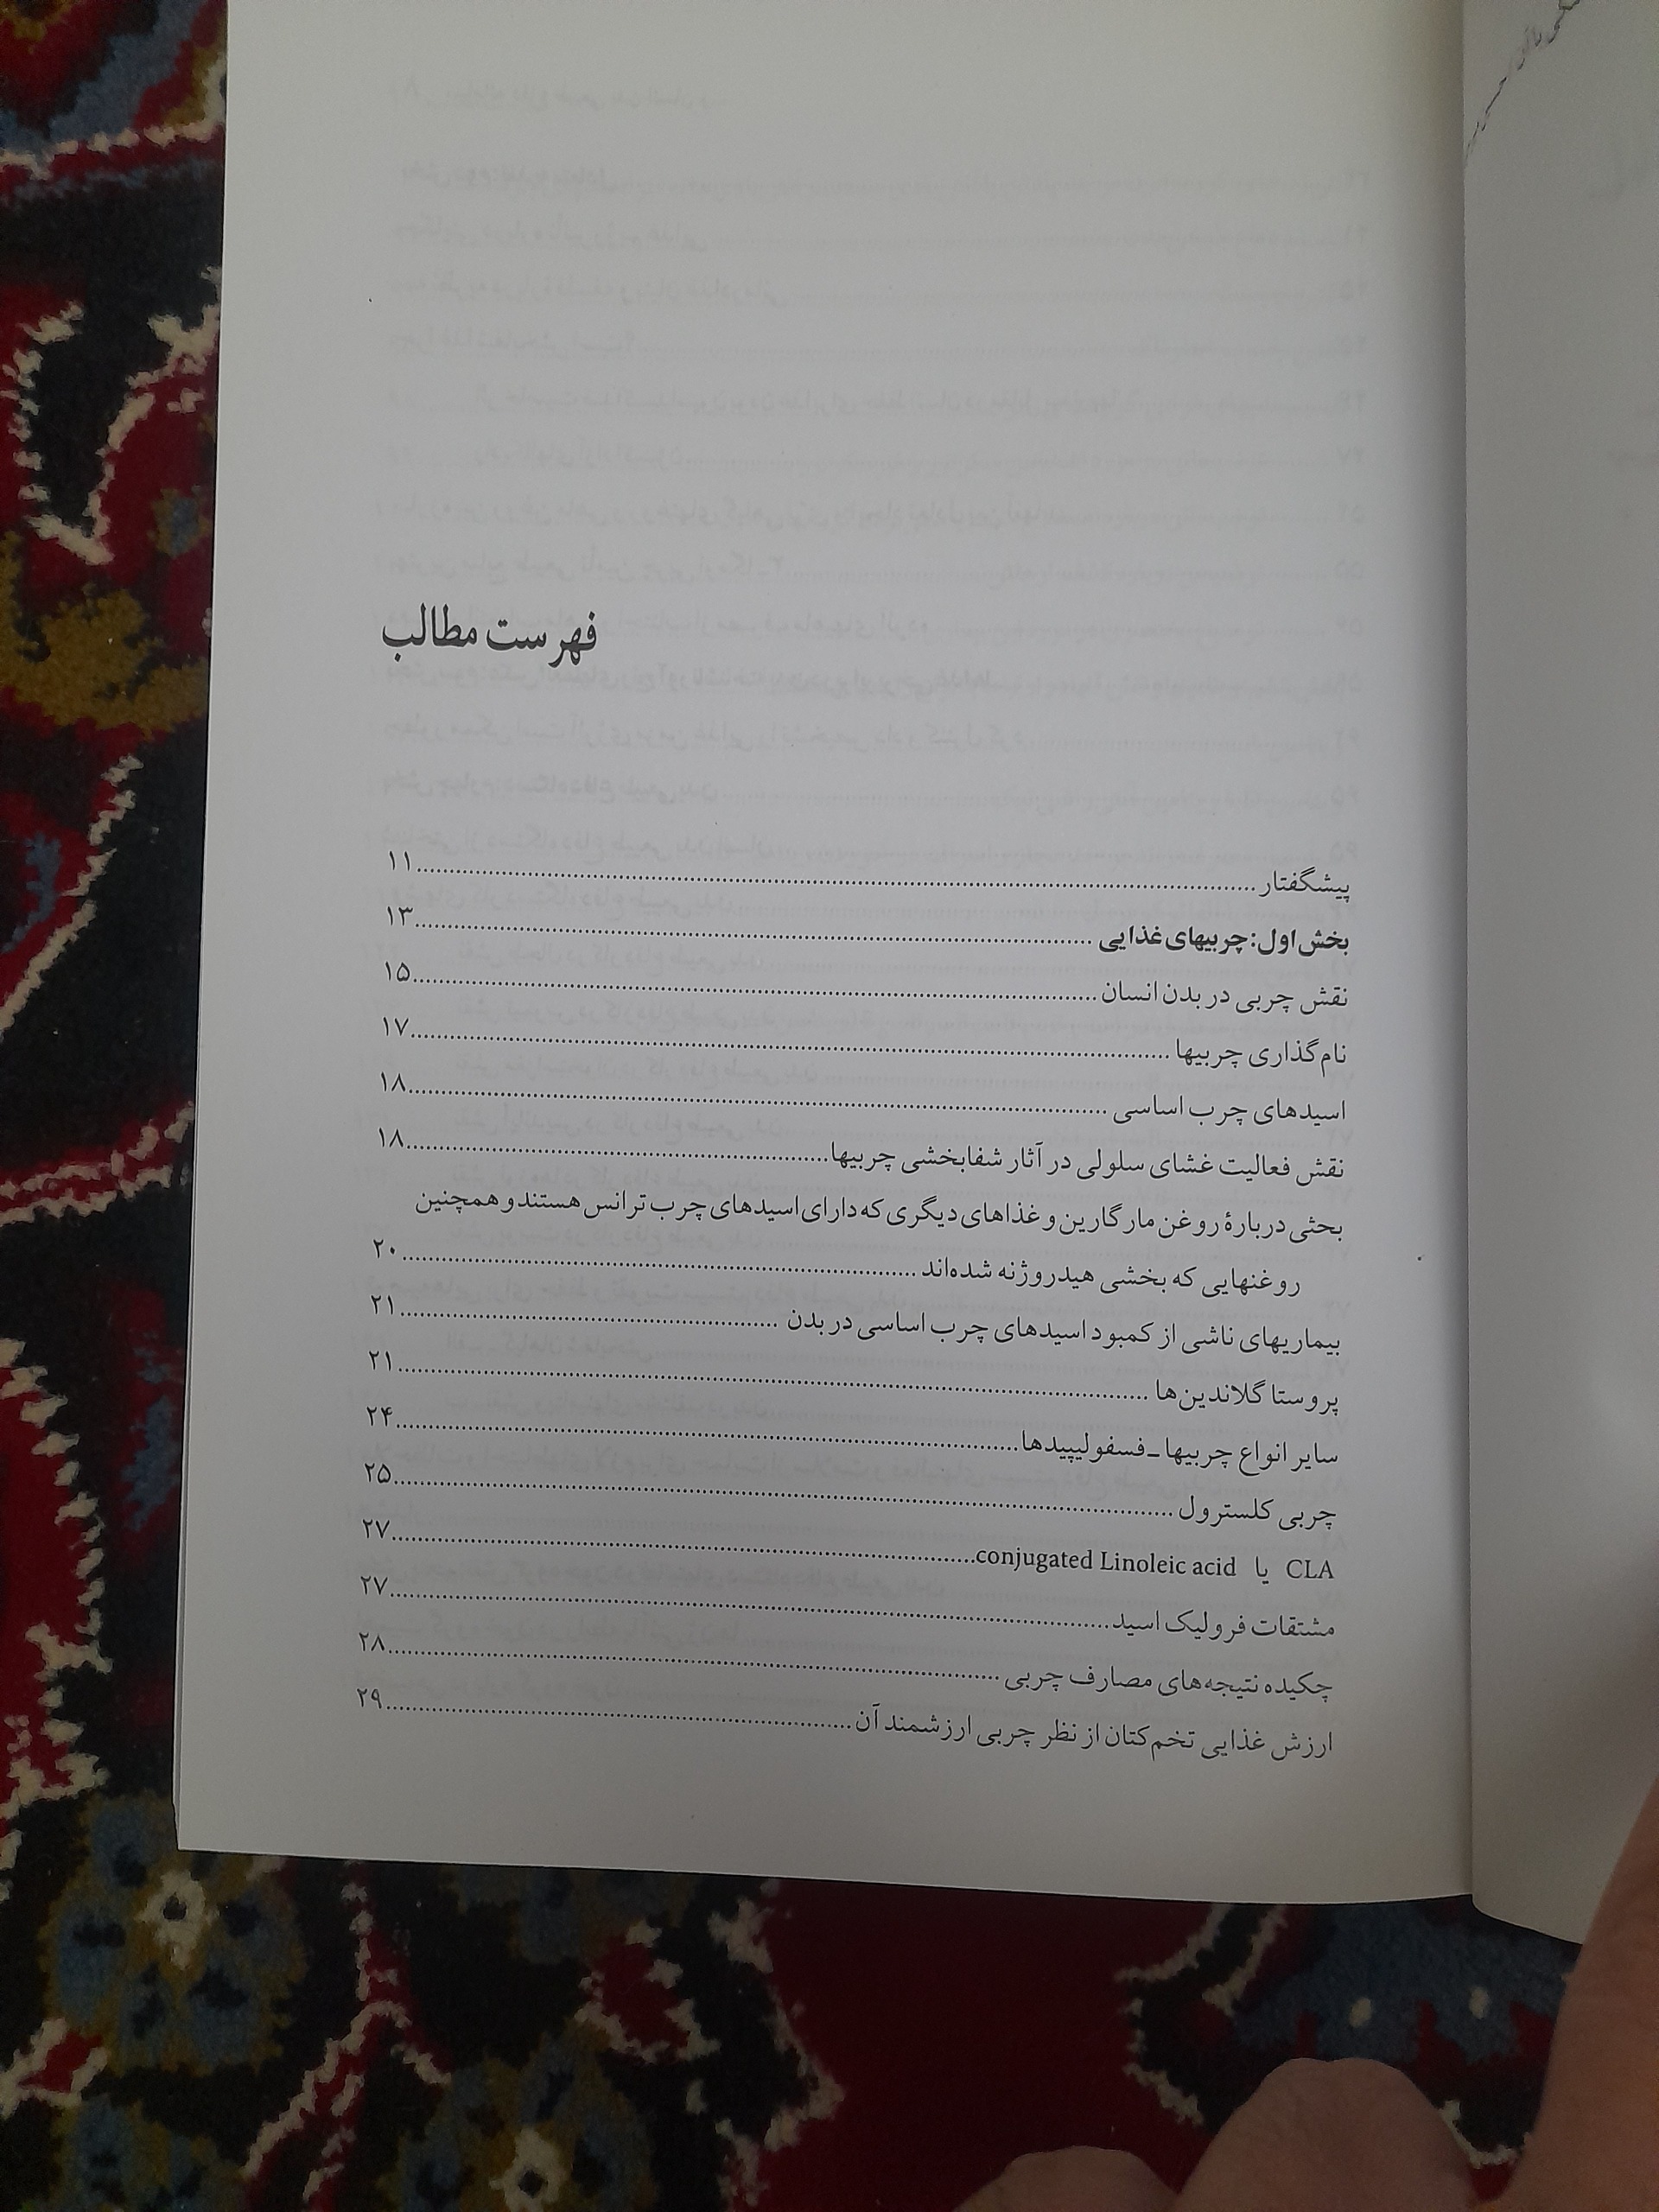 فهرست مطالب
پیشگفتار ........ ۱۱
بخش اول: چربیهای غذایی ........ ۱۳
نقش چربی در بدن انسان ........ ۱۵
نام‌گذاری چربیها ........ ۱۷
اسیدهای چرب اساسی ........ ۱۸
نقش فعالیت غشای سلولی در آثار شفابخشی چربیها ........ ۱۸
بحثی دربارهٔ روغن مارگارین و غذاهای دیگری که دارای اسیدهای چرب ترانس هستند و همچنین
روغنهایی که بخشی هیدروژنه شده‌اند ........ ۲۰
بیماریهای ناشی از کمبود اسیدهای چرب اساسی در بدن ........ ۲۱
پروستا گلاندین‌ها ........ ۲۱
سایر انواع چربیها ـ فسفولیپیدها ........ ۲۴
چربی کلسترول ........ ۲۵
CLA یا conjugated Linoleic acid ........ ۲۷
مشتقات فرولیک اسید ........ ۲۷
چکیده نتیجه‌های مصارف چربی ........ ۲۸
ارزش غذایی تخم‌کتان از نظر چربی ارزشمند آن ........ ۲۹